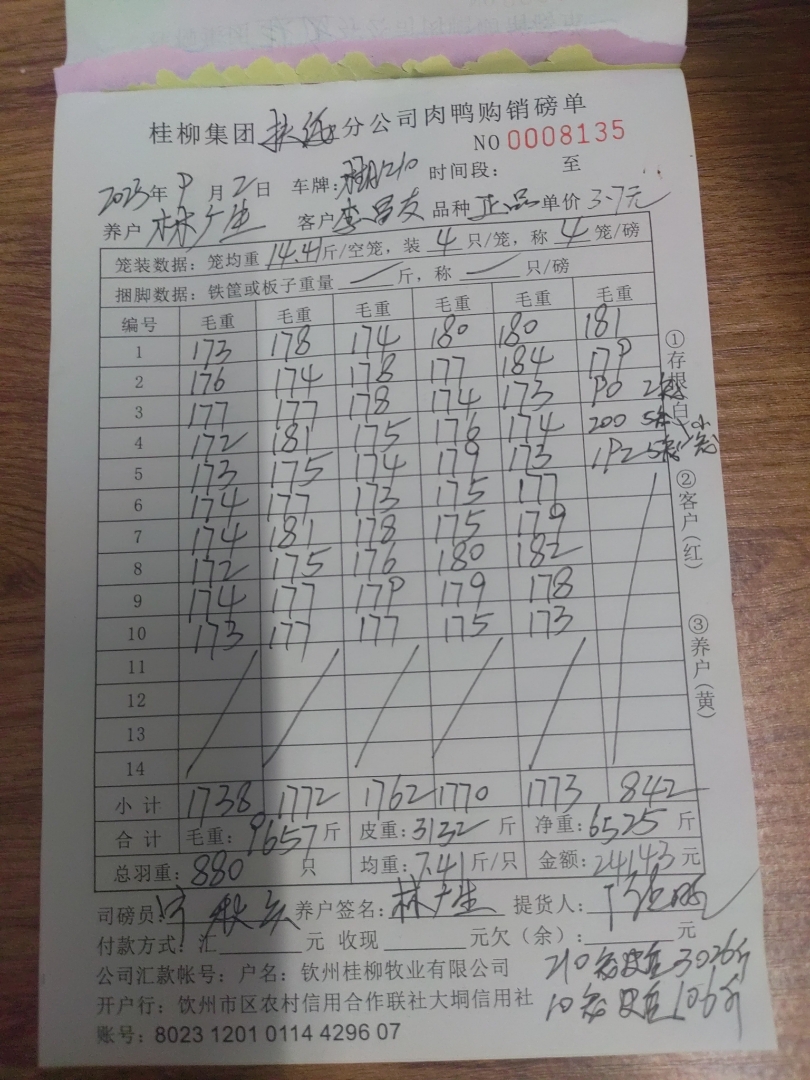 桂柳集团扶绥分公司肉鸭购销磅单
NO 0008135
2023年9月2日 车牌: 210 时间段: 至
养户 林广生 客户 李昌友 品种 正品 单价 3.7元
笼装数据：笼均重 14.41 斤/空笼，装 4 只/笼，称 4 笼/磅
捆脚数据：铁筐或板子重量 斤，称 只/磅
编号 毛重 毛重 毛重 毛重 毛重 毛重
1 173 178 174 180 180 181
2 176 174 178 177 184 179
3 177 177 178 174 173 90 2笼
4 172 181 175 176 174 200 5笼 小
5 173 175 174 179 173 192 5笼 笼
6 174 177 173 175 177
7 174 181 178 175 179
8 172 175 176 180 182
9 174 177 179 179 178
10 173 177 177 175 173
11
12
13
14
小计 1738 1772 1762 1770 1773 842
合计 毛重: 9657 斤 皮重: 3132 斤 净重: 6525 斤
总羽重: 880 只 均重: 7.41 斤/只 金额: 24143 元
司磅员: 养户签名: 林广生 提货人:
付款方式: 汇 元 收现 元欠（余）: 元
公司汇款帐号：户名：钦州桂柳牧业有限公司
210笼皮重3026斤
开户行：饮州市区农村信用合作联社大垌信用社
10笼皮重106斤
账号：8023 1201 0114 4296 07
①存根（白）
②客户（红）
③养户（黄）